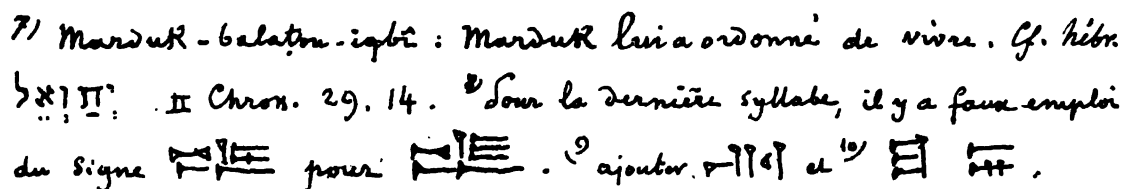 7) Marduk-balaṭou-iqbî : Marduk lui a ordonné de vivre. Cf. hébr.
יְחַוְאֵל . II Chron. 29. 14. 8) Pour la dernière syllabe, il y a faux emploi
du signe pour . 9) ajouter et 10) .